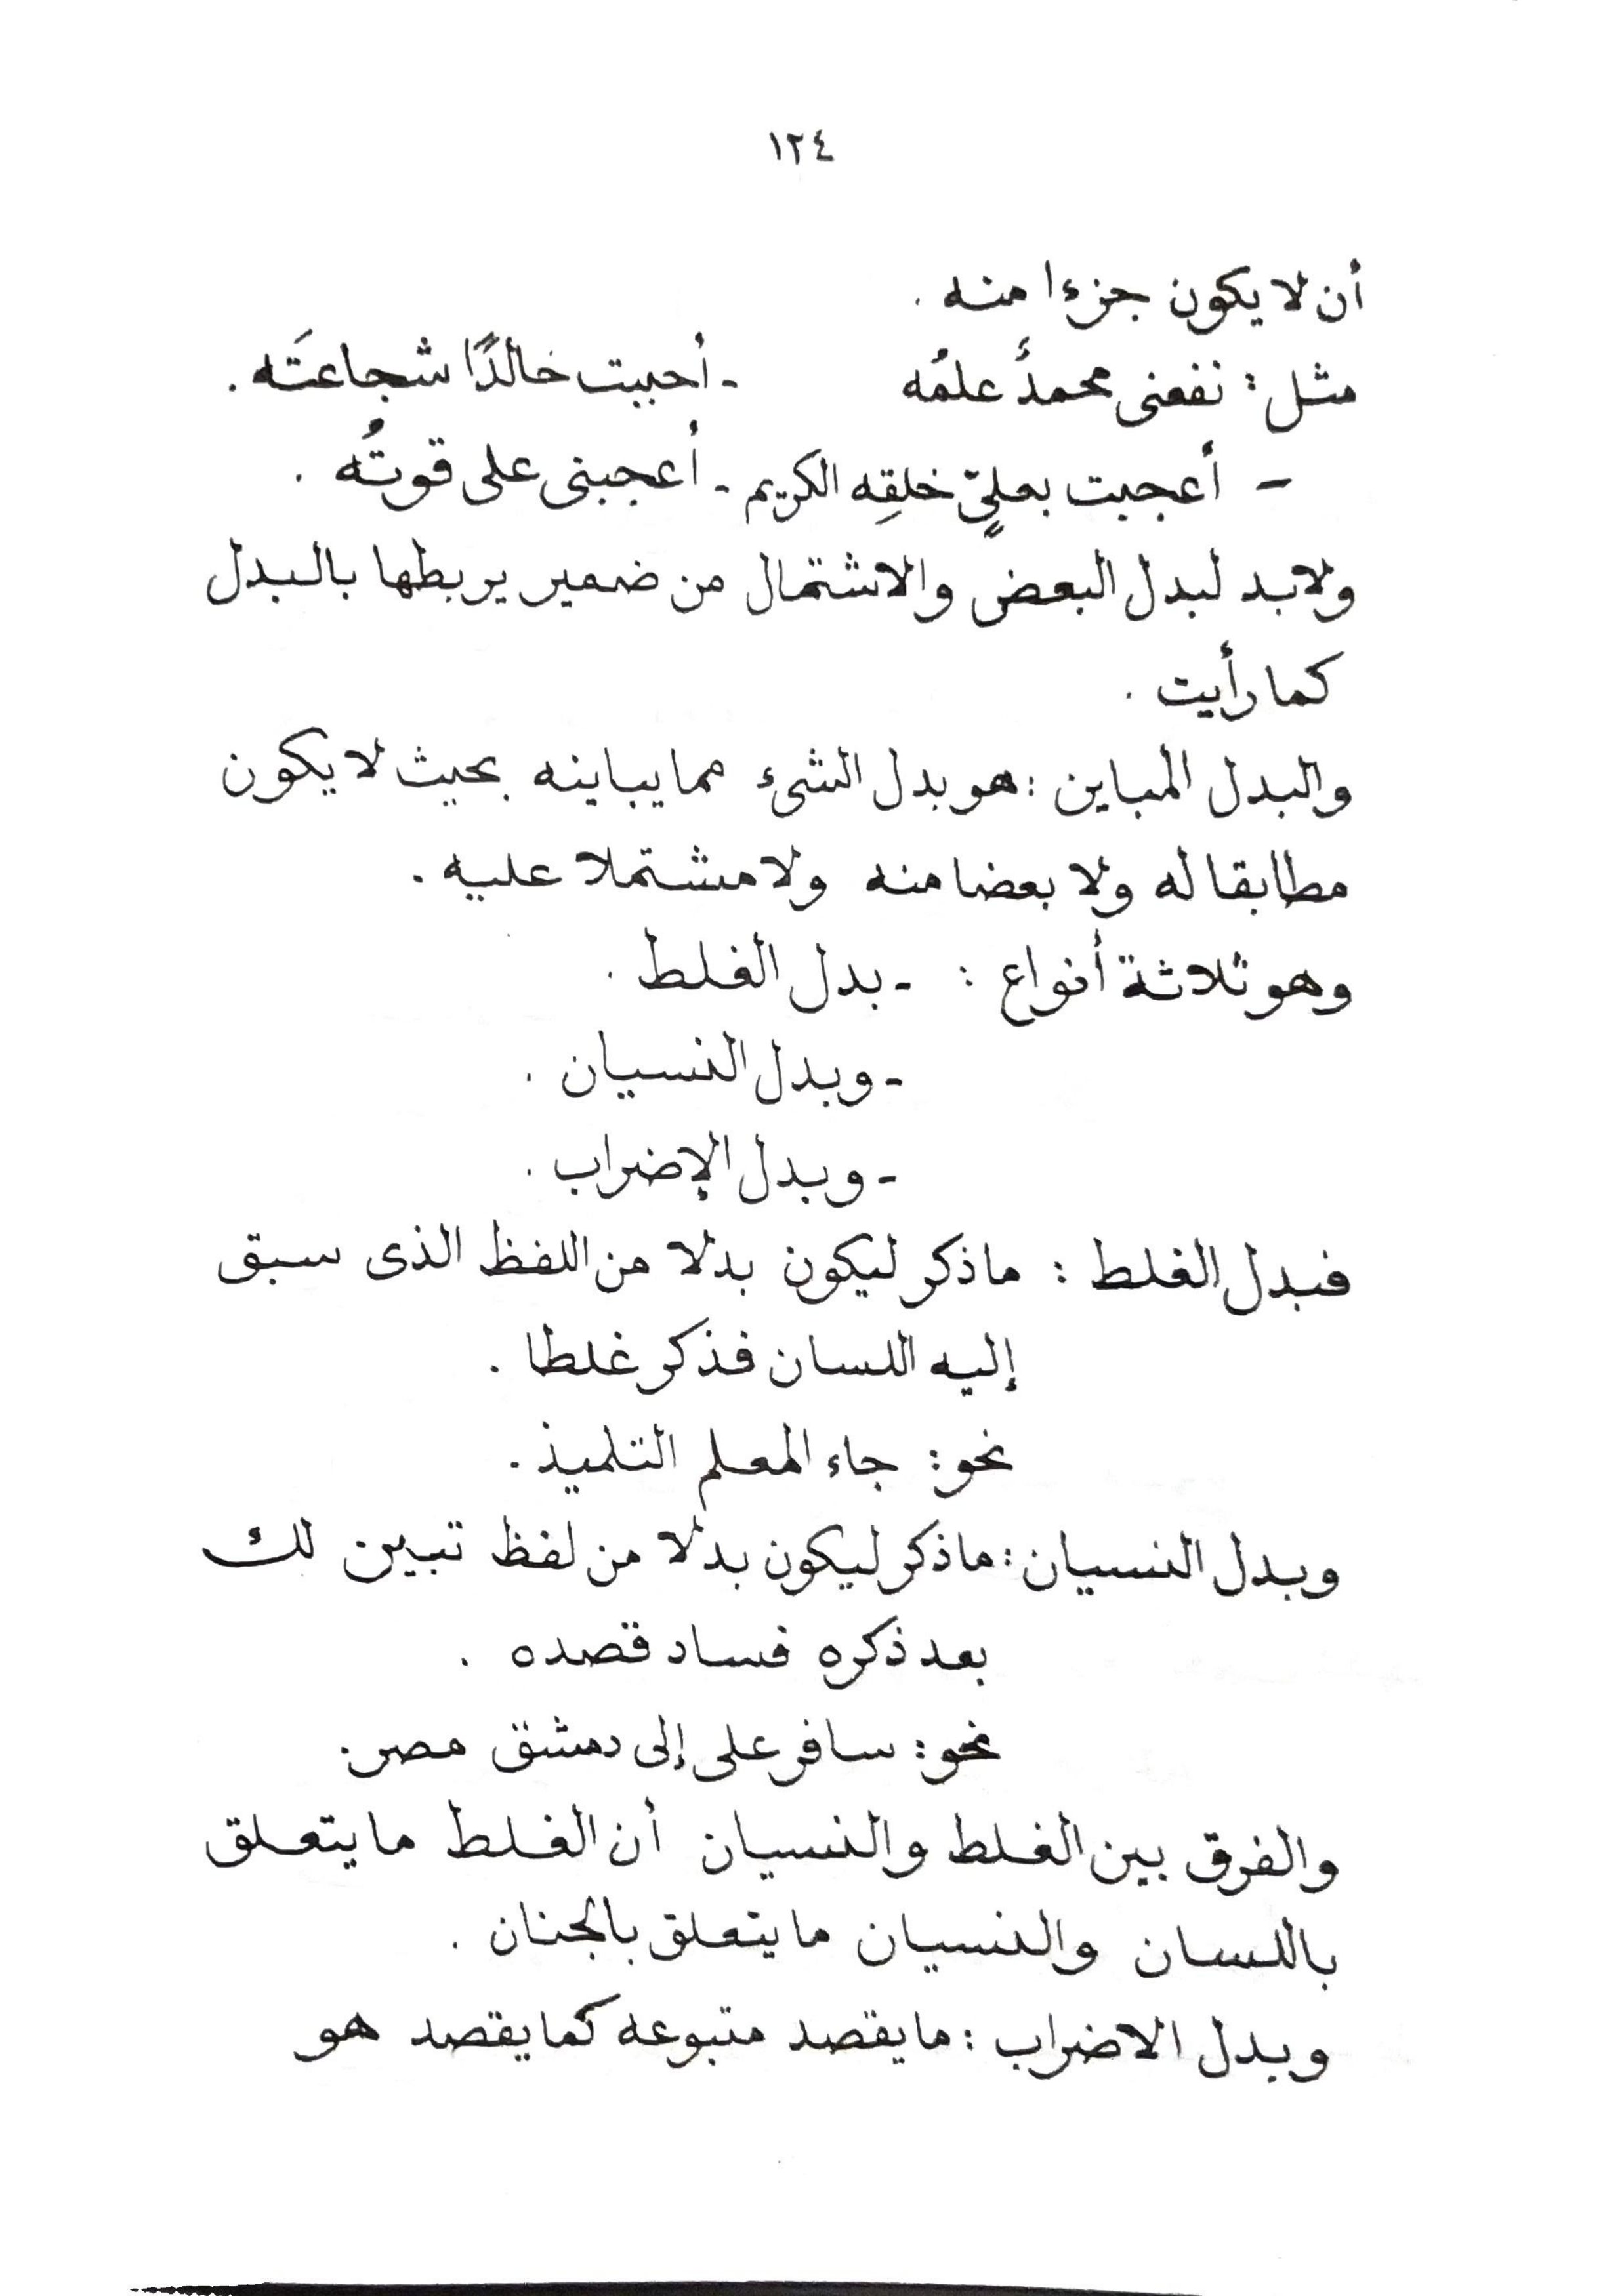 ١٢٤
أن لا يكون جزءا منه .
مثل : نفعنى محمدٌ علمُه - أحببت خالدًا شجاعتَه .
- أعجبت بعليٍّ خلقِه الكريم - أعجبنى على قوتُه .
ولابد لبدل البعض والاشتمال من ضمير يربطها بالبدل
كما رأيت .
والبدل المباين : هو بدل الشىء مما يباينه بحيث لا يكون
مطابقا له ولا بعضا منه ولا مشتملا عليه .
وهو ثلاثة أنواع : - بدل الغلط .
- وبدل النسيان .
- وبدل الإضراب .
فبدل الغلط : ما ذكر ليكون بدلا من اللفظ الذى سبق
إليه اللسان فذكر غلطا .
نحو : جاء المعلم التلميذ .
وبدل النسيان : ما ذكر ليكون بدلا من لفظ تبين لك
بعد ذكره فساد قصده .
نحو : سافر على إلى دمشق مصر .
والفرق بين الغلط والنسيان أن الغلط ما يتعلق
باللسان والنسيان ما يتعلق بالجنان .
وبدل الاضراب : ما يقصد متبوعه كما يقصد هو